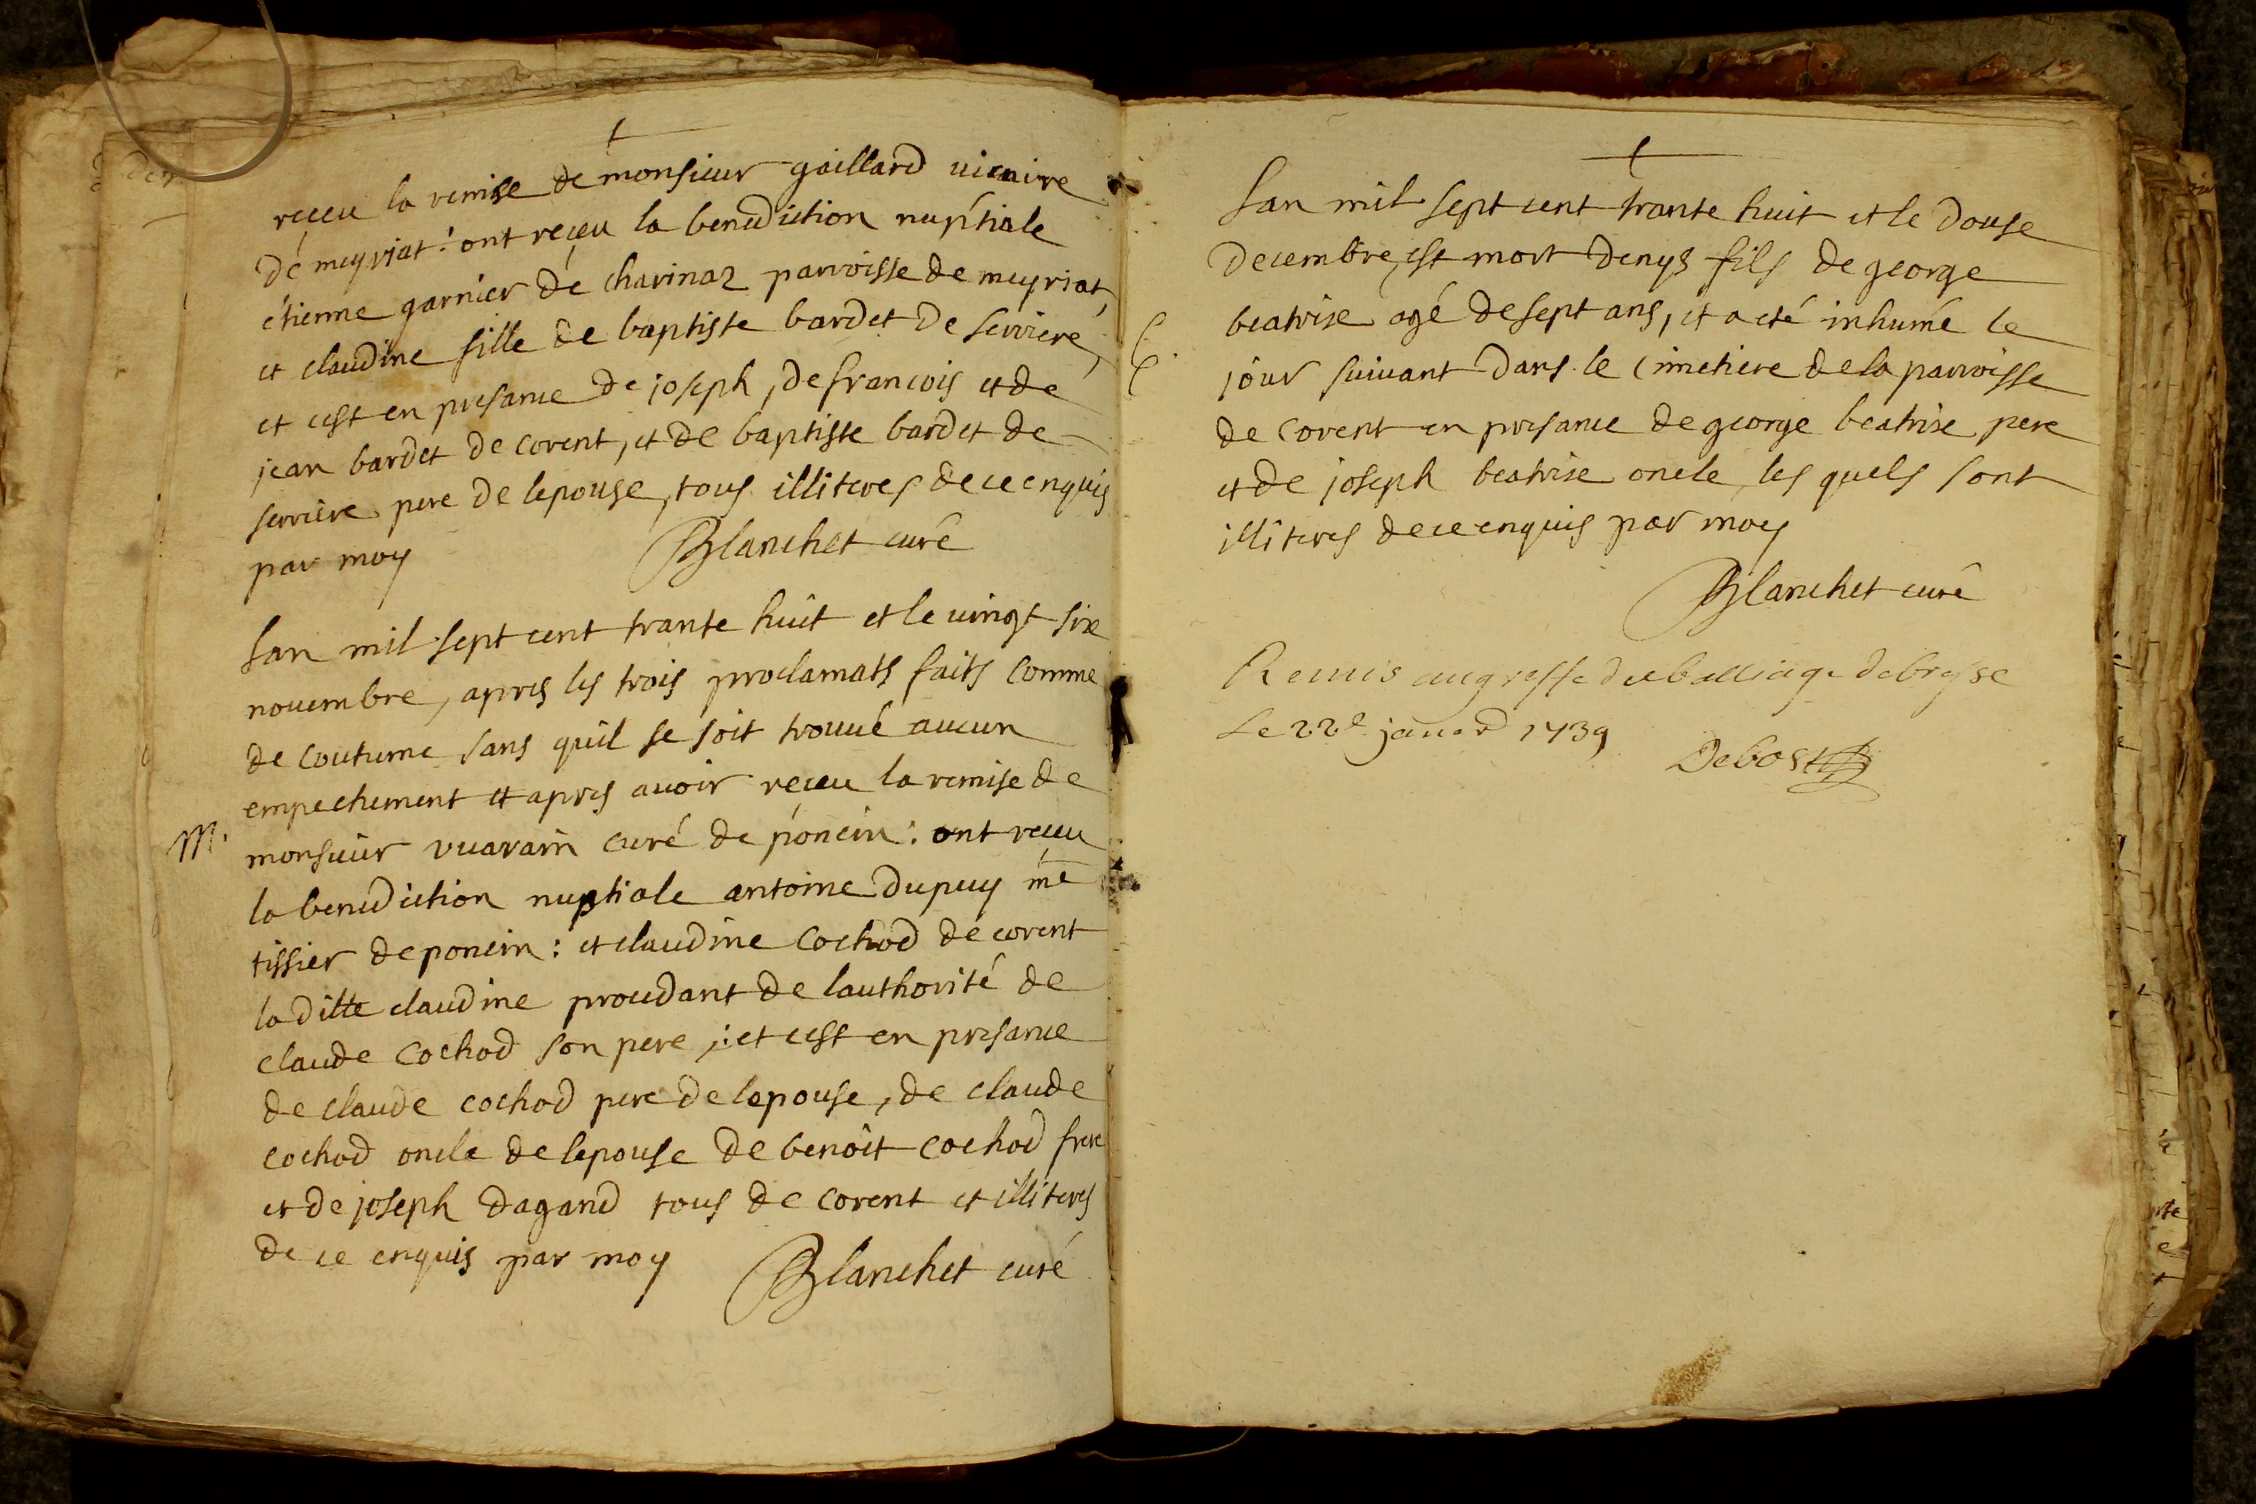 receu la remise de monsieur gaillard vicaire
de meyriat : ont receu la benediction nuptiale
etienne garnier de charinaz parroisse de meyriat,
et claudine fille de baptiste bardet de serriere,
et cest en presance de joseph, de francois et de
jean bardet de corent, et de baptiste bardet de
serriere pere de lepouse, tous illiteres de ce enquis
par moy
Blanchet curé
lan mil sept cent trante huit et le vingt six
novembre, apres les trois proclamats faits comme
de coutume sans quil se soit trouvé aucun
empechement et apres avoir receu la remise de
M.
monsieur vuarain curé de poncin : ont receu
la benediction nuptiale antoine dupuy me
tissier de poncin : et claudine cochod de corent
la ditte claudine procedant de lauthorité de
claude cochod son pere ; et cest en presance
de claude cochod pere de lepouse, de claude
cochod oncle de lepouse de benoit cochod frere
et de joseph dagand tous de corent et illiteres
de ce enquis par moy
Blanchet curé
lan mil sept cent trante huit et le douse
decembre, est mort denys fils de george
beatrise agé de sept ans, et a eté inhumé le
jour suivant dans le cimetiere de la parroisse
de corent en presance de george beatrise pere
et de joseph beatrise oncle, les quels sont
illiteres de ce enquis par moy
Blanchet curé
Remis au greffe du balliage de bresse
Le 22e janer 1739
Debost